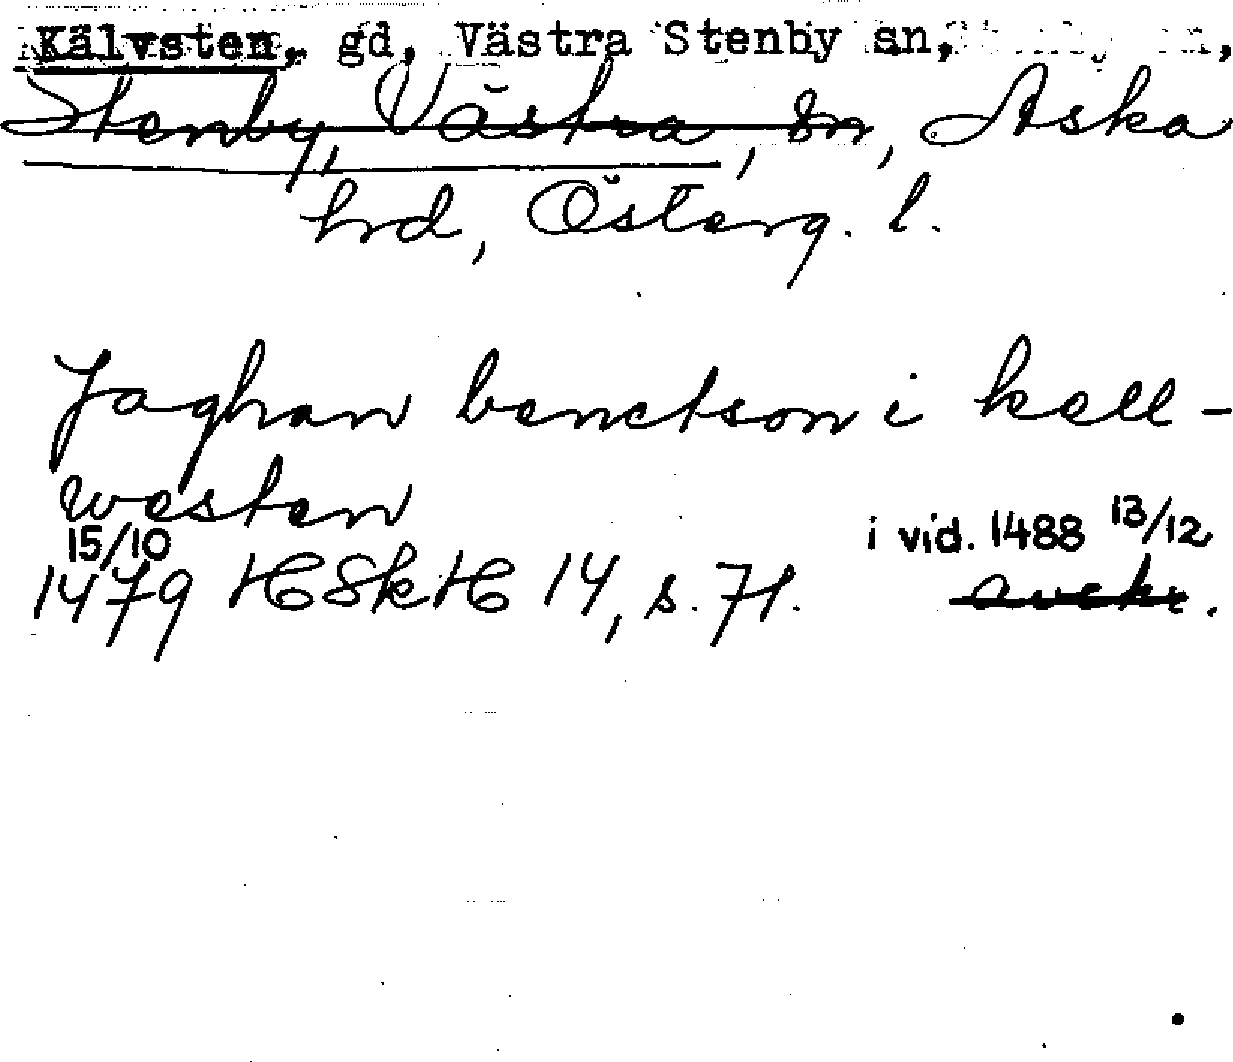 Kälvsten, gd, Västra Stenby sn,
Stenby, Västra, sn, Aska
hrd, Österg. l.
Jaghan benctson i kell-
westen
15/10 i vid. 1488 13/12
1479 HSkH 14, s. 71. avskr.